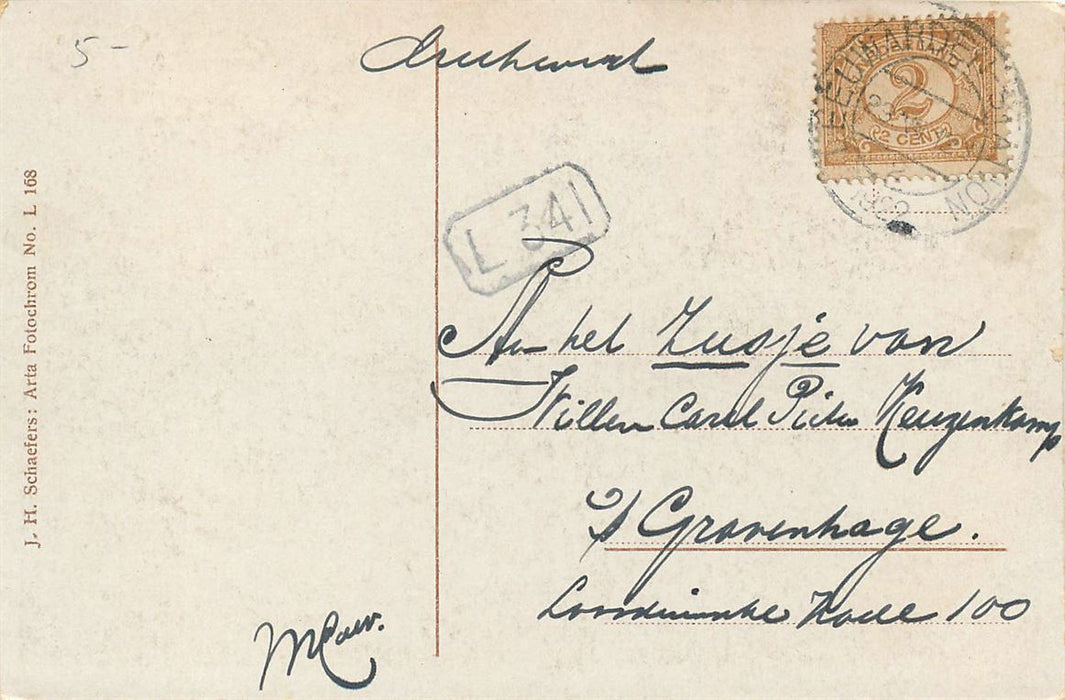 5-
Drukwerk
2
2 CENT
LEEUWARDEN-STATION
L 341
Aan het Zusje van
Willem Carel Pieter Keuzenkamp
s/ Gravenhage.
Kade 100
J. H. Schaefers: Arta Fotochrom No. L 168